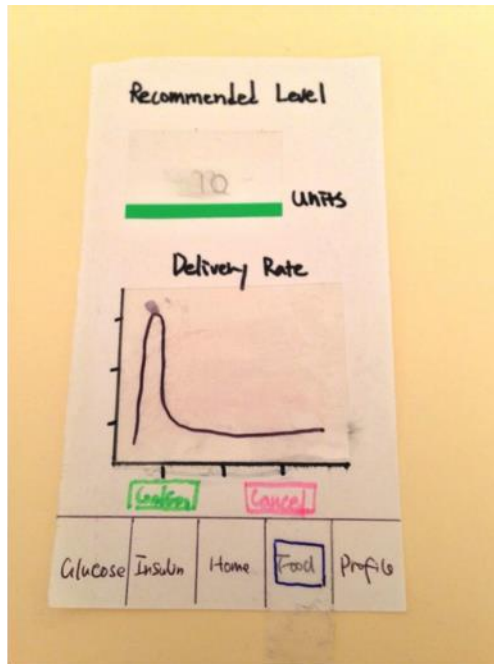 Recommended Level
70
Units
Delivery Rate
Confirm Cancel
Glucose Insulin Home Food Profile